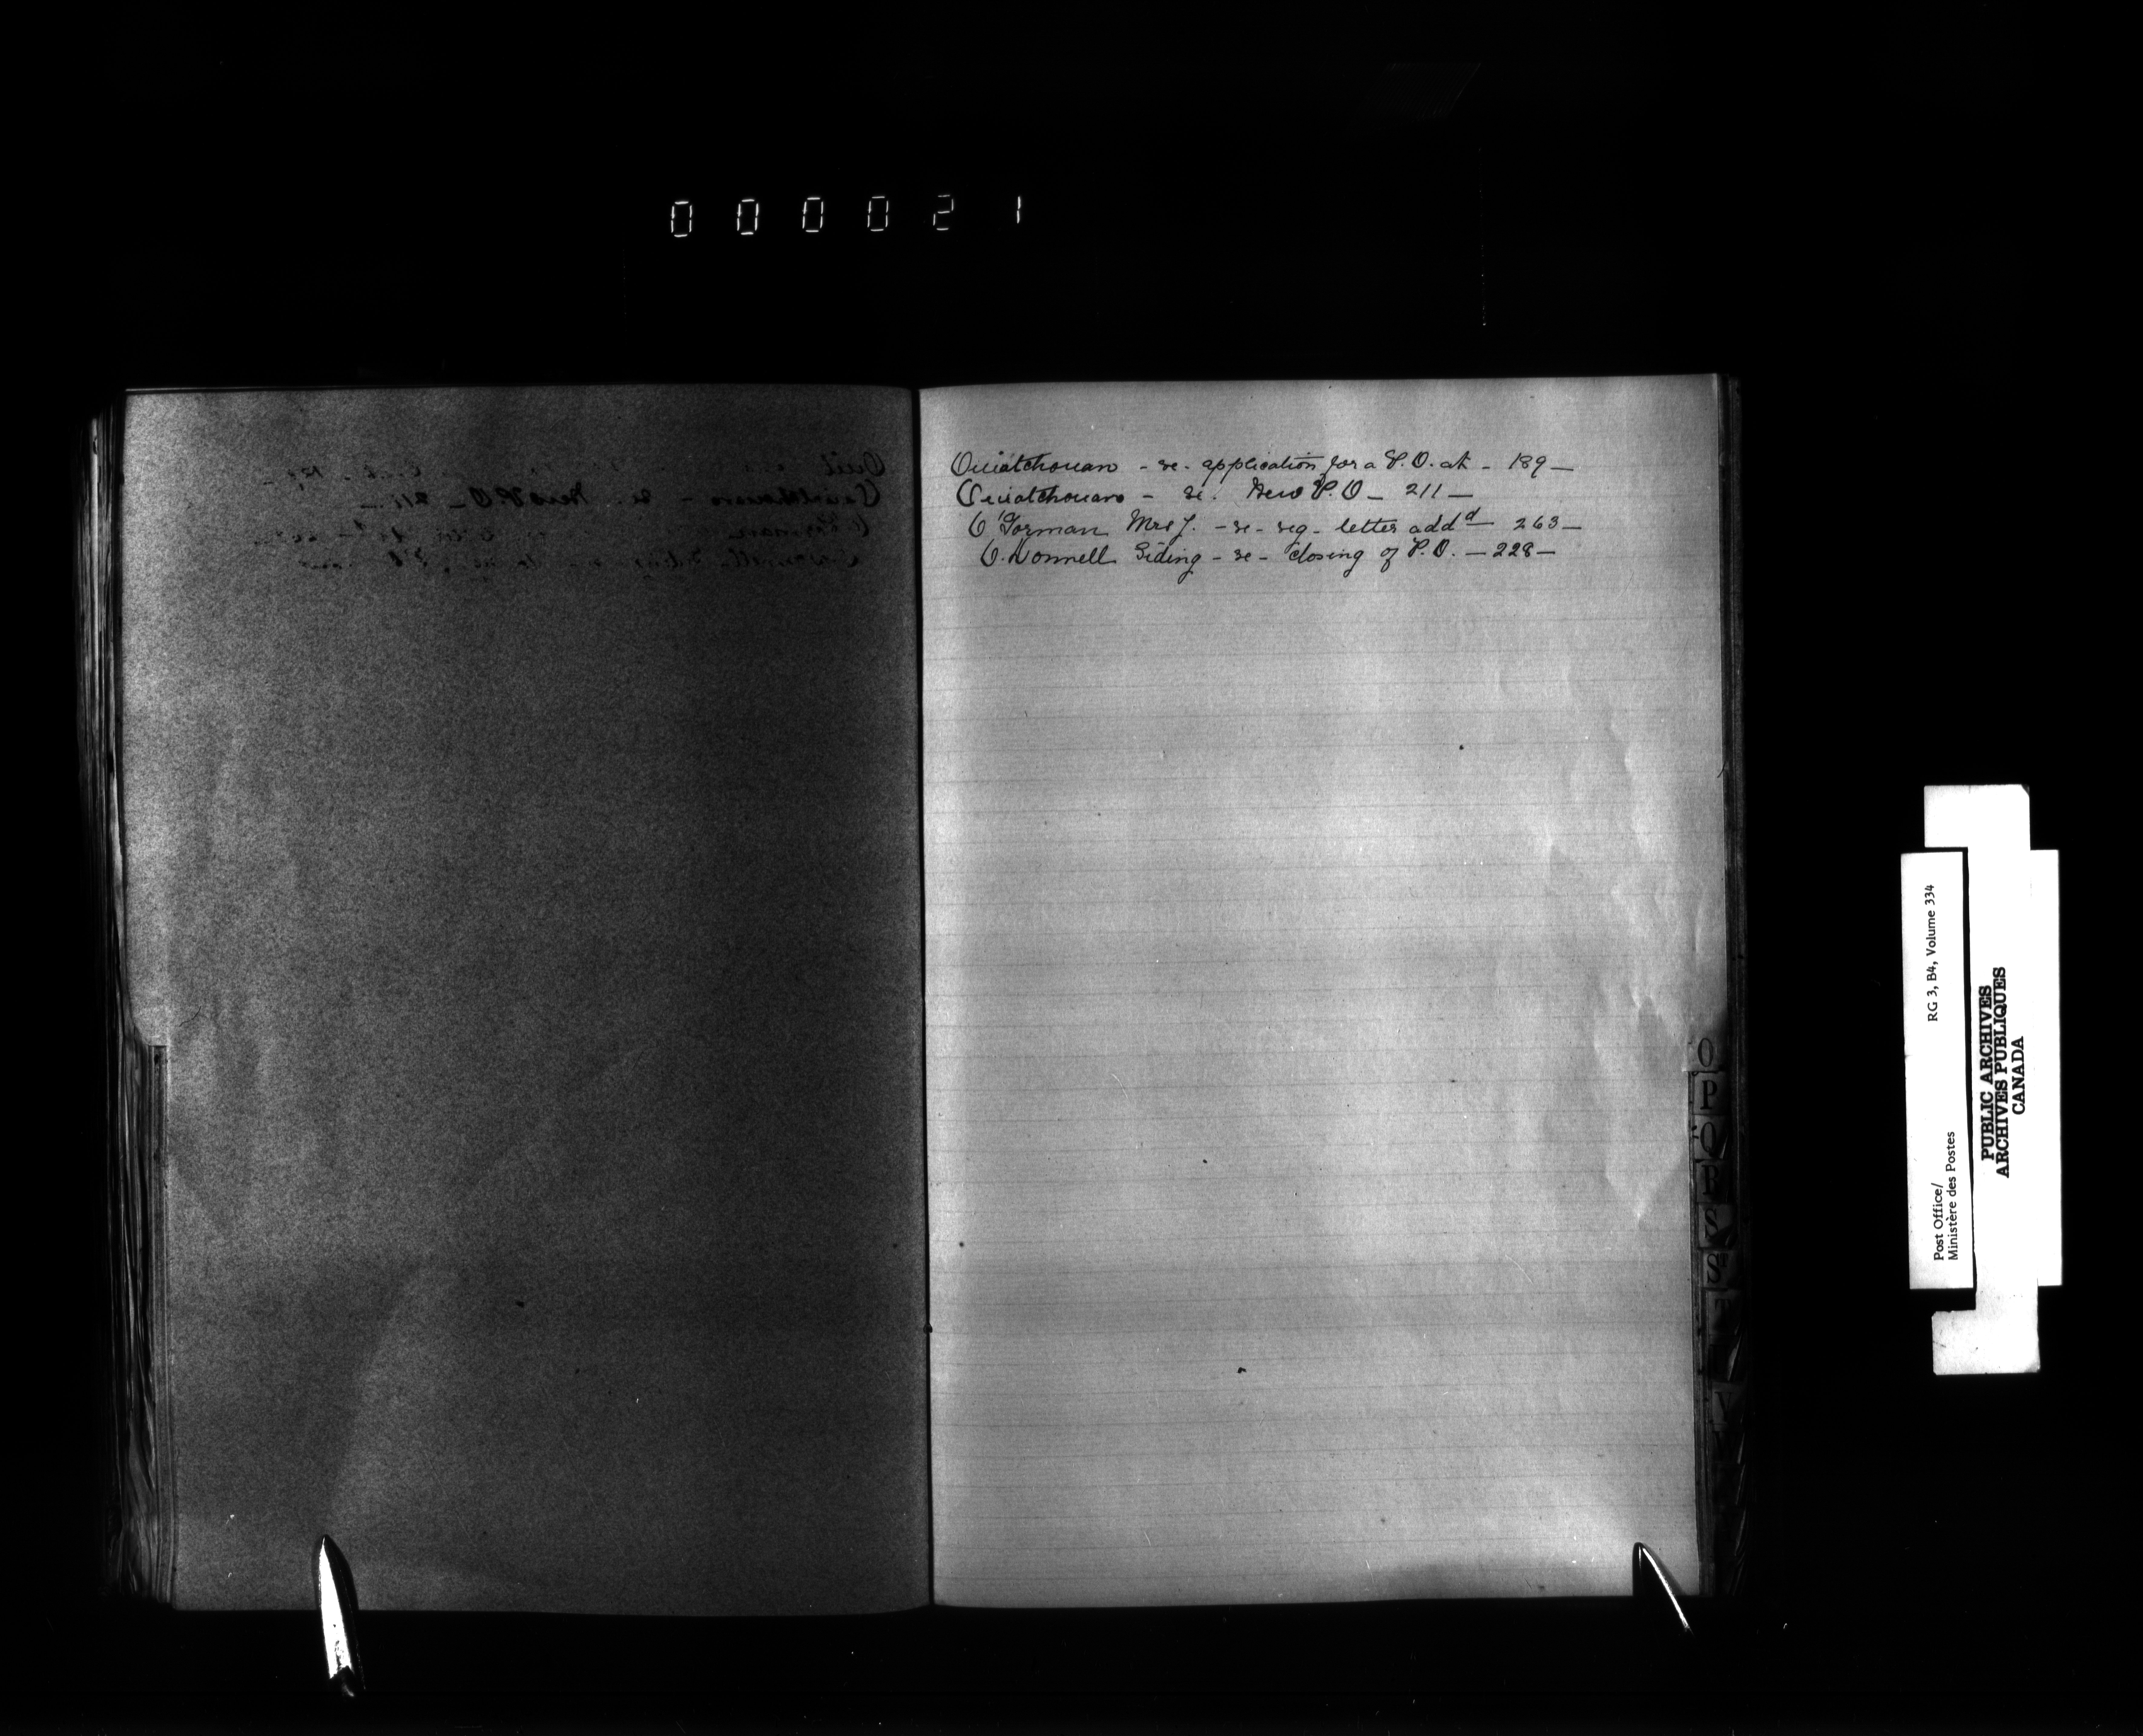 000021
Ouiatchouan - re - application for a P.O. at - 189 -
Ouiatchouan - re. New P.O - 211 -
O'Gorman Mrs J. - re - reg - letter add^d - 263 -
O.Donnell Siding - re - closing of P.O. - 228 -
O
P
Q
R
S
V
RG 3, B4, Volume 334
Post Office/
Ministère des Postes
PUBLIC ARCHIVES
ARCHIVES PUBLIQUES
CANADA